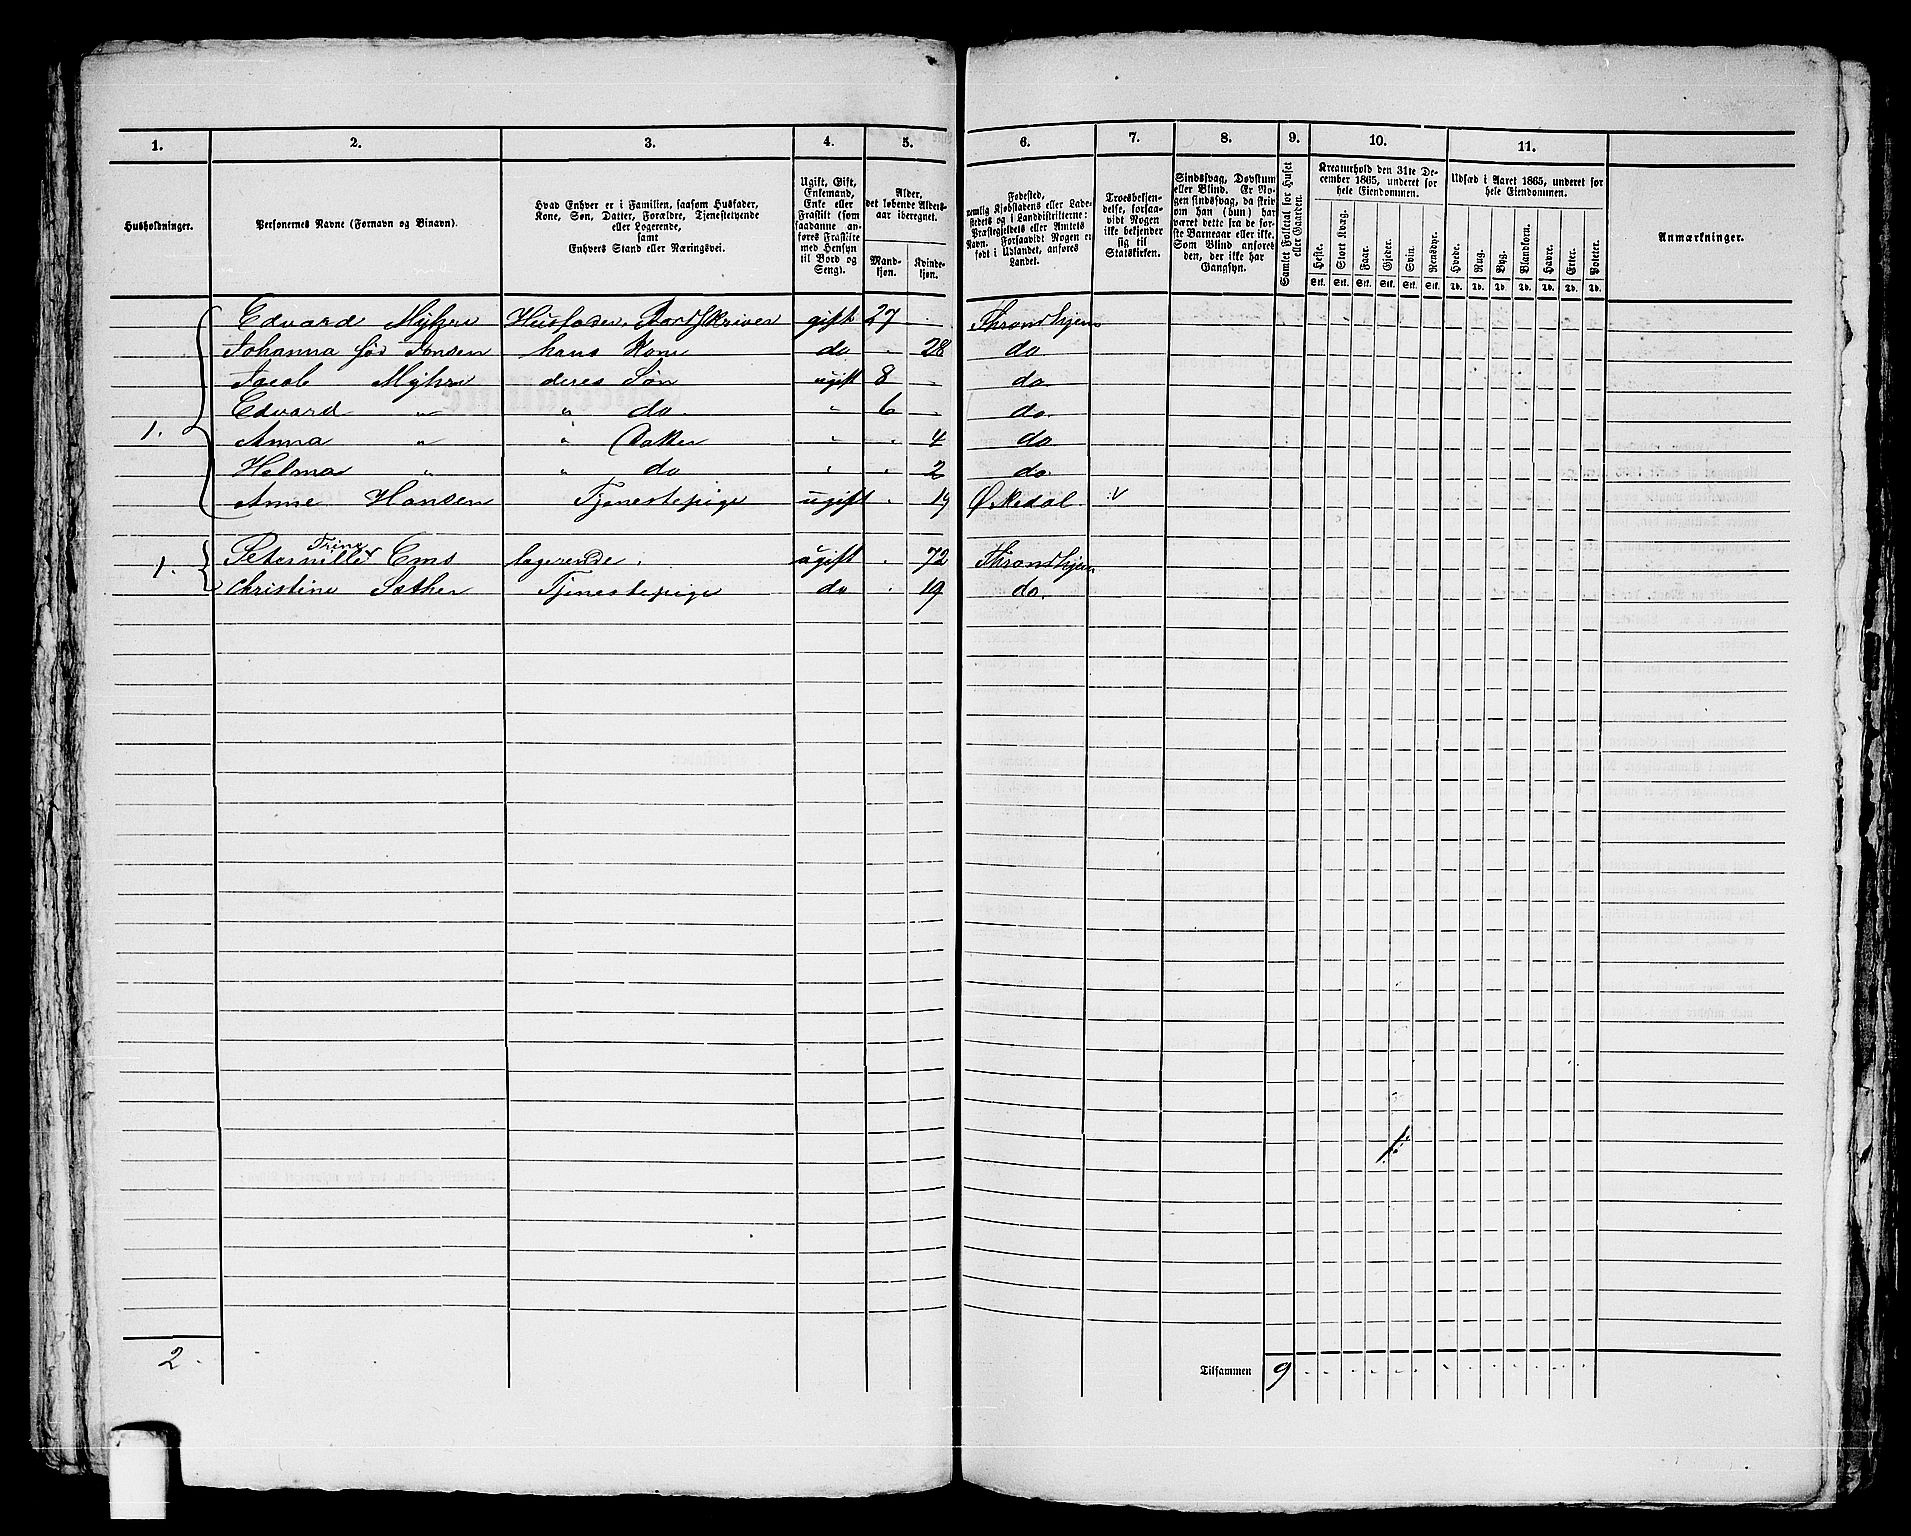 1. 2. 3. 4. 5. 6. 7. 8. 9. 10. 11.
Husholdninger.
Personernes Navne (Fornavn og Binavn).
Hvad Enhver er i Familien, saasom Husfader,
Kone, Søn, Datter, Forældre, Tjenestetyende
eller Logerende,
samt
Enhvers Stand eller Næringsvei.
Ugift, Gift,
Enkemand,
Enke eller
Fraskilt (som
saadanne an-
føres Fraskilte
med Hensyn
til Bord og
Seng).
Alder,
det løbende Alders-
aar iberegnet.
Mand-
kjøn.
Kvinde-
kjøn.
Fødested,
nemlig Kjøbstadens eller Lade-
stedets og i Landdistrikterne:
Præstegjeldets eller Amtets
Navn. Forsaavidt Nogen er
født i Udlandet, anføres
Landet.
Troesbekjen-
delse, forsaa-
vidt Nogen
ikke bekjender
sig til
Statskirken.
Sindssvag, Døvstum
eller Blind. Er No-
gen sindssvag, da skri-
ves om han (hun) har
været dette fra de før-
ste Barneaar eller ikke.
Som Blind anføres
den, der ikke har
Gangsyn.
Samlet Folketal for Huset
eller Gaarden.
Kreaturhold den 31te De-
cember 1865, underet for
hele Eiendommen.
Heste. Stort Kvæg. Faar. Gjeder. Svin. Rensdyr.
Stk. Stk. Stk. Stk. Stk. Stk.
Udsæd i Aaret 1865, underet for
hele Eiendommen.
Hvede. Rug. Byg. Blandkorn. Havre. Erter. Poteter.
Td. Td. Td. Td. Td. Td. Td.
Anmærkninger.
Edvard Myhre Husfader, gift 27 Throndhjem
Johanna fød Jonsen hans Kone do 28 do
Jacob Myhre deres Søn ugift 8 do
Edvard " " do " 6 do
1. Anna " " Datter " 4 do
Helma " " do " 2 do
Anne Hansen Tjenestepige ugift 19 Ørkedal
Trine
1. Peternille Ems logerende ugift 72 Throndhjem
Christine Sæther Tjenestepige do 19 do
2. Tilsammen 9